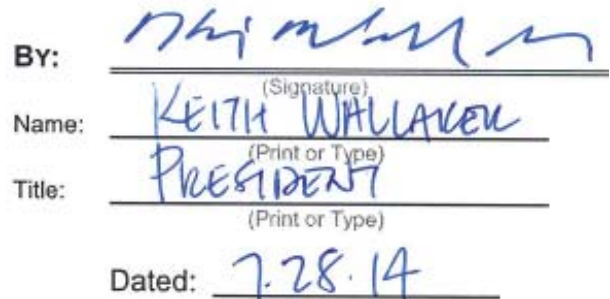 BY:
(Signature)
Name: KEITH WALLAKER
(Print or Type)
Title: PRESIDENT
(Print or Type)
Dated: 7.28.14